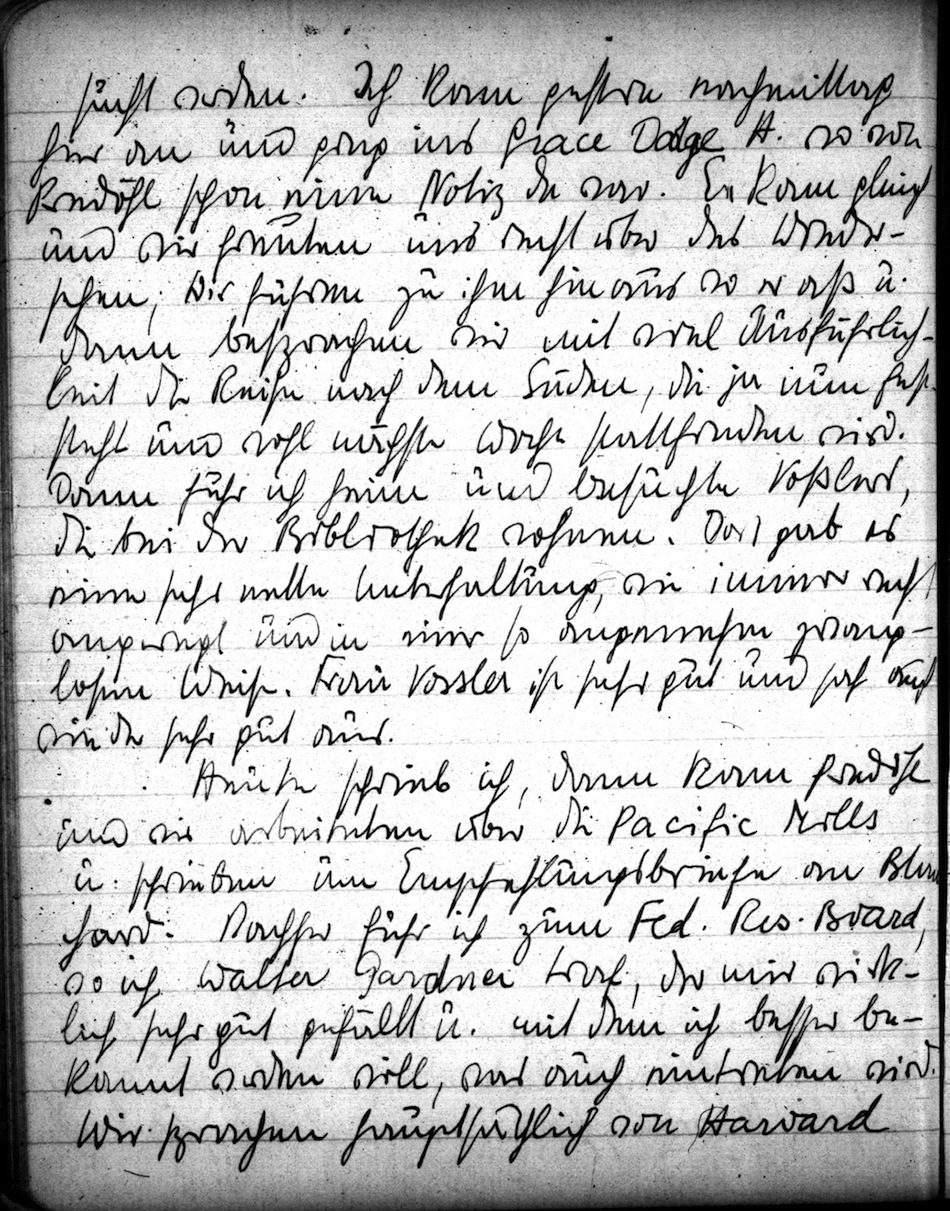 sucht werden. Ich kam gestern nachmittag
hier an und ging ins Grace Dodge H. wo von
Predöhl schon eine Notiz da war. Er kam gleich
und wir freuten uns recht über das Wieder-
sehen; Wir fuhren zu ihm hinaus wo er aß u.
dann besprachen wir mit viel Ausführlich-
keit die Reise nach dem Süden, die ja nun fest
steht und wohl nächste Woche stattfinden wird.
Dann fuhr ich heim und besuchte Voßlers,
die bei der Bibliothek wohnen. Dort gab es
eine sehr nette Unterhaltung, wie immer recht
angeregt und in einer so angenehm zwang-
losen Weise. Frau Vossler ist sehr gut und sah auch
wieder sehr gut aus.
Heute schrieb ich, dann kam Predöhl
und wir arbeiteten über die Pacific Mills
u. schrieben um Empfehlungsbriefe an
hard. Nachher fuhr ich zum Fed. Res. Board,
wo ich Walter Gardner traf, der mir wirk-
lich sehr gut gefällt u. mit dem ich besser be-
kannt werden will, was auch eintreten wird.
Wir sprachen hauptsächlich von Harvard